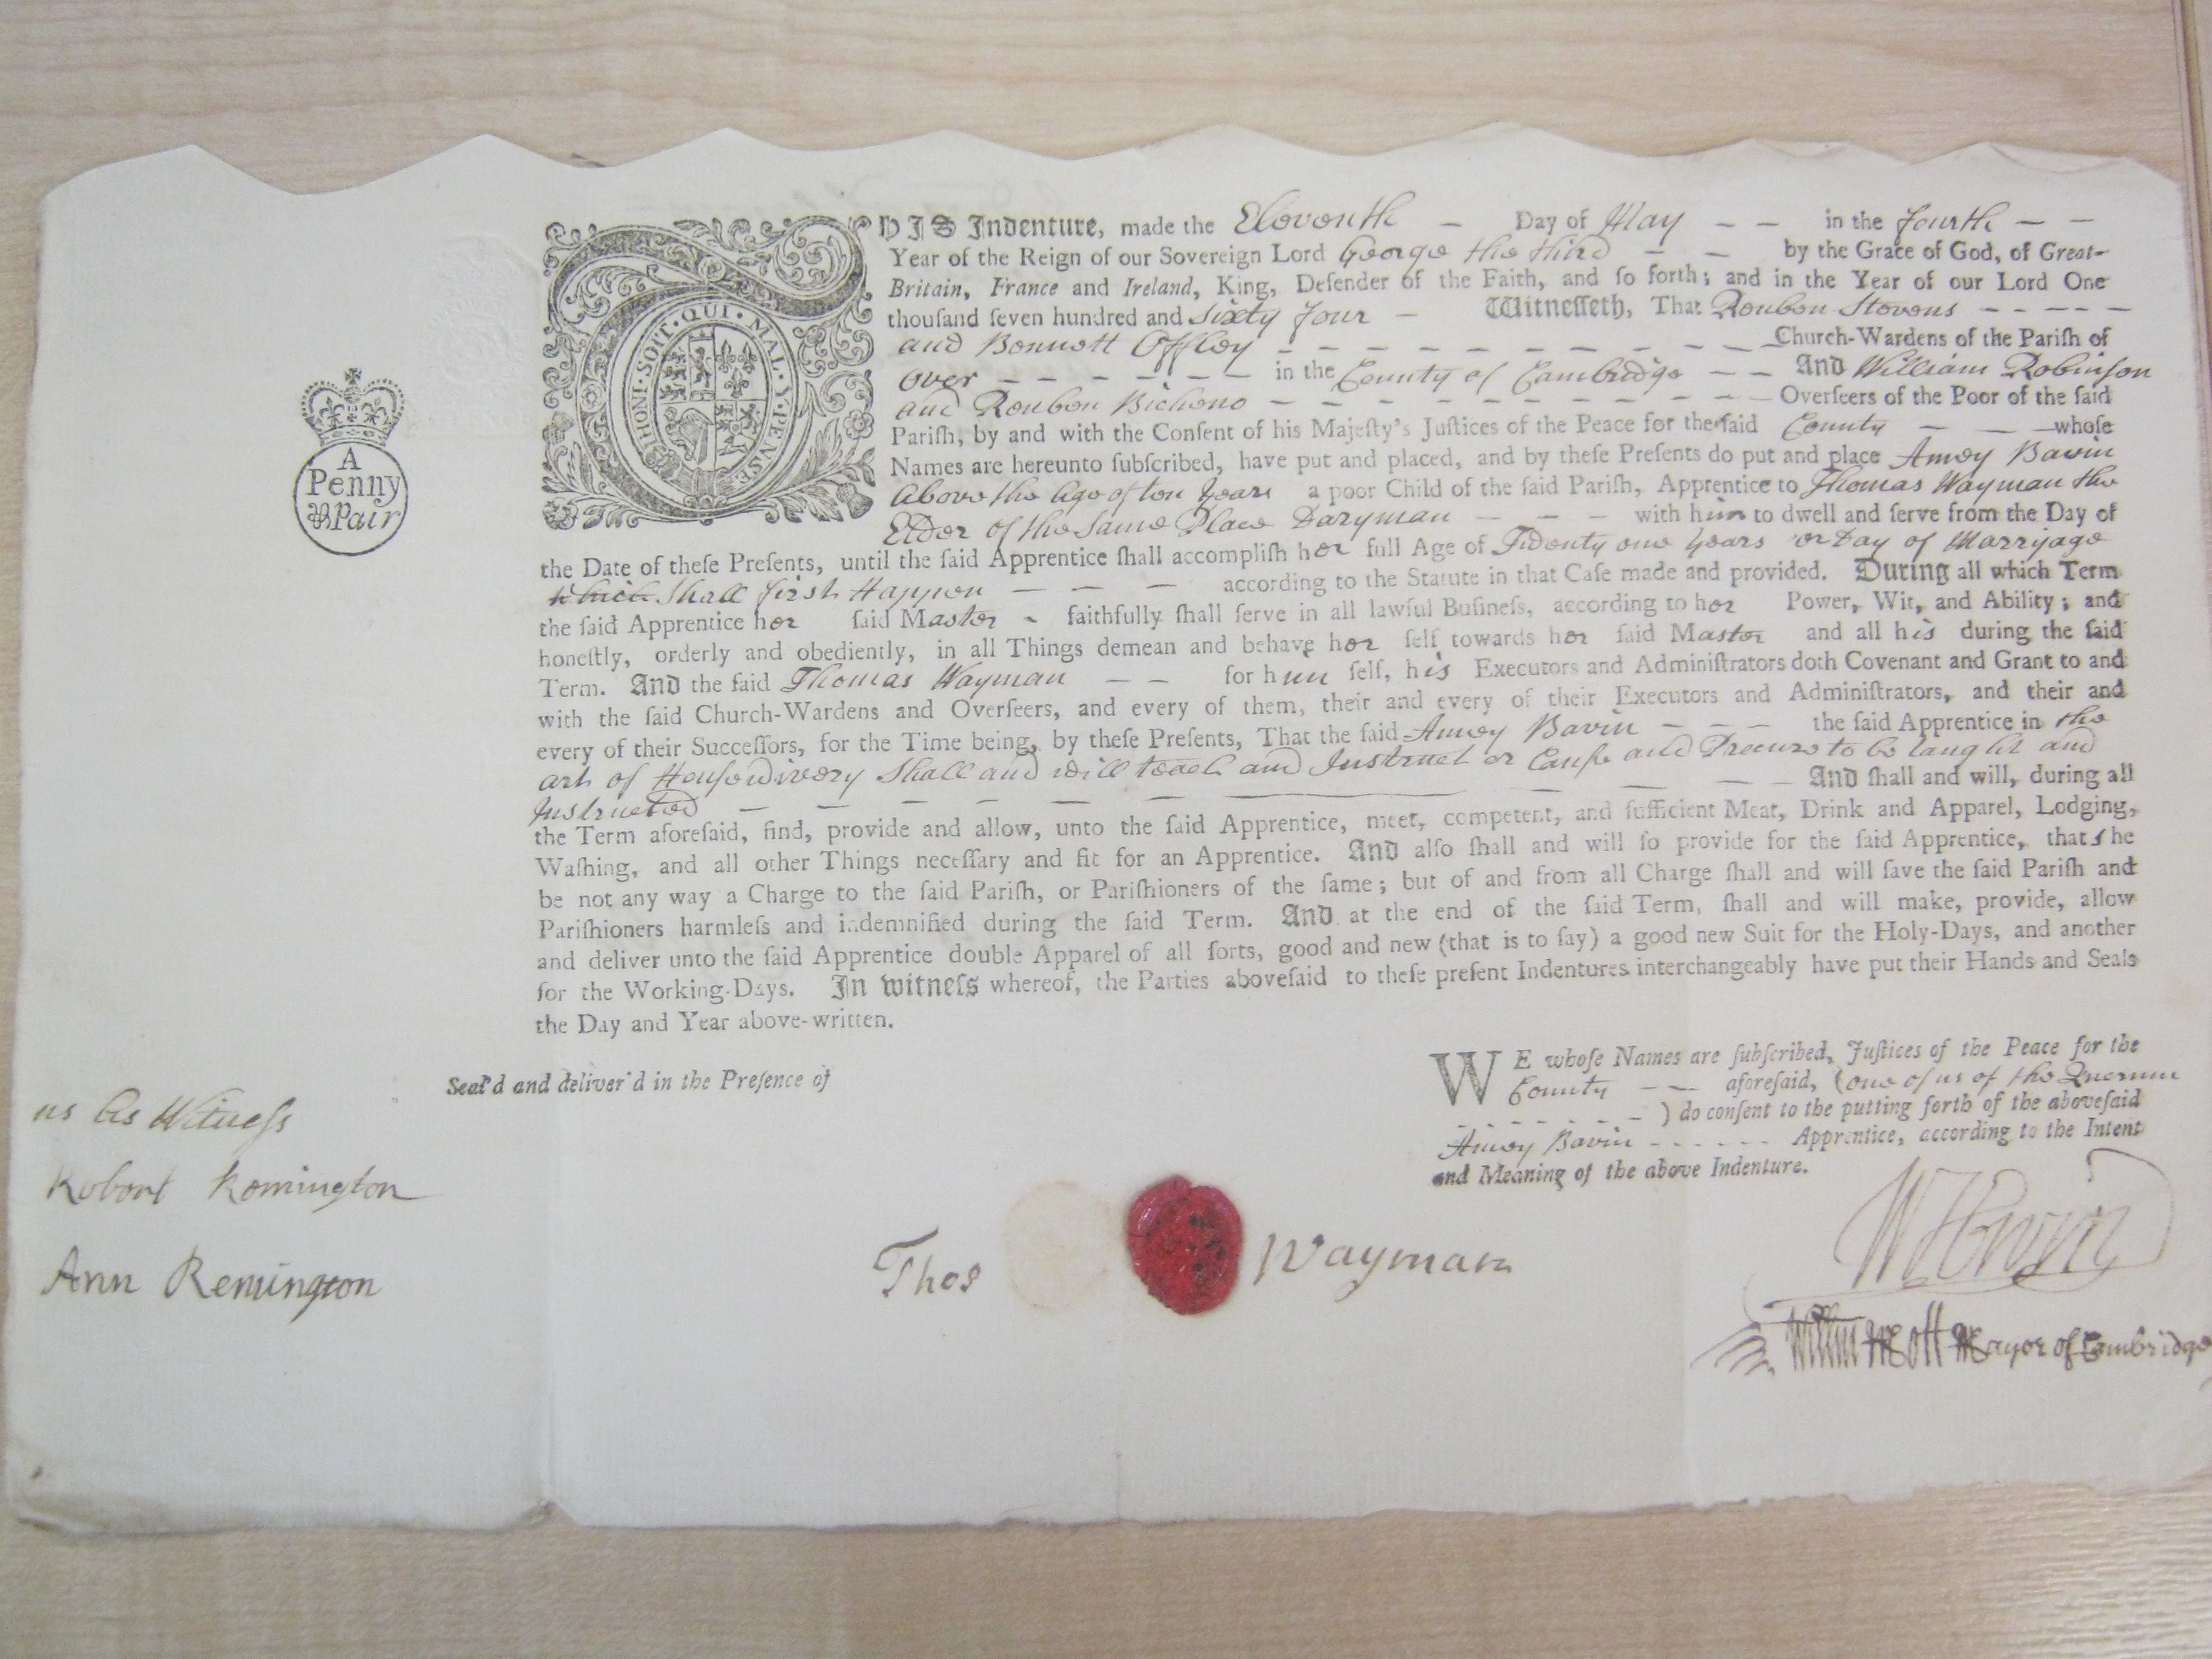 HONI · SOIT · QUI · MAL · Y · PENSE
A
Penny
Pair
THIS Indenture, made the Eleventh – Day of May – – in the fourth – –
Year of the Reign of our Sovereign Lord George the third – – by the Grace of God, of Great-
Britain, France and Ireland, King, Defender of the Faith, and ſo forth; and in the Year of our Lord One
thouſand ſeven hundred and Sixty four – Witneſſeth, That Reuben Stevens – – – – –
and Bennett Offley – – – – – – – – – – Church-Wardens of the Pariſh of
Over – – – – – – in the County of Cambridge – – And William Robinſon
and Reuben Bicheno – – – – – – – – – – Overſeers of the Poor of the ſaid
Pariſh, by and with the Conſent of his Majeſty's Juſtices of the Peace for the ſaid County – – – whoſe
Names are hereunto ſubſcribed, have put and placed, and by theſe Preſents do put and place Amey Bavin
Above the Age of ten Years a poor Child of the ſaid Pariſh, Apprentice to Thomas Wayman the
Elder of the Same Place Daryman – – – with him to dwell and ſerve from the Day of
the Date of theſe Preſents, until the ſaid Apprentice ſhall accompliſh her full Age of Twenty one Years or Day of Marryage
which Shall first Happen – – – according to the Statute in that Caſe made and provided. During all which Term
the ſaid Apprentice her ſaid Master – faithfully ſhall ſerve in all lawful Buſineſs, according to her Power, Wit, and Ability; and
honeſtly, orderly and obediently, in all Things demean and behave her ſelf towards her ſaid Master and all his during the ſaid
Term. And the ſaid Thomas Wayman – – for him ſelf, his Executors and Adminiſtrators doth Covenant and Grant to and
with the ſaid Church-Wardens and Overſeers, and every of them, their and every of their Executors and Adminiſtrators, and their and
every of their Succeſſors, for the Time being, by theſe Preſents, That the ſaid Amey Bavin – – – the ſaid Apprentice in the
art of Houſewivery Shall and will teach and Instruct or Cauſe and Procure to be taught and
Instructed – – – – – – – – – And ſhall and will, during all
the Term aforeſaid, find, provide and allow, unto the ſaid Apprentice, meet, competent, and ſufficient Meat, Drink and Apparel, Lodging,
Waſhing, and all other Things neceſſary and fit for an Apprentice. And alſo ſhall and will ſo provide for the ſaid Apprentice, that ſhe
be not any way a Charge to the ſaid Pariſh, or Pariſhioners of the ſame; but of and from all Charge ſhall and will ſave the ſaid Pariſh and
Pariſhioners harmleſs and indemnified during the ſaid Term. And at the end of the ſaid Term, ſhall and will make, provide, allow
and deliver unto the ſaid Apprentice double Apparel of all ſorts, good and new (that is to ſay) a good new Suit for the Holy-Days, and another
for the Working-Days. In witneſs whereof, the Parties aboveſaid to theſe preſent Indentures interchangeably have put their Hands and Seals
the Day and Year above-written.
Seal'd and deliver'd in the Preſence of
us As Witneſs
Robert Remington
Ann Remington
Thos Wayman
WE whoſe Names are ſubſcribed, Juſtices of the Peace for the
County – – aforeſaid, (one of us of the Quorum
– – – – – –) do conſent to the putting forth of the aboveſaid
Amey Bavin – – – – – – Apprentice, according to the Intent
and Meaning of the above Indenture.
Mayor of Cambridge